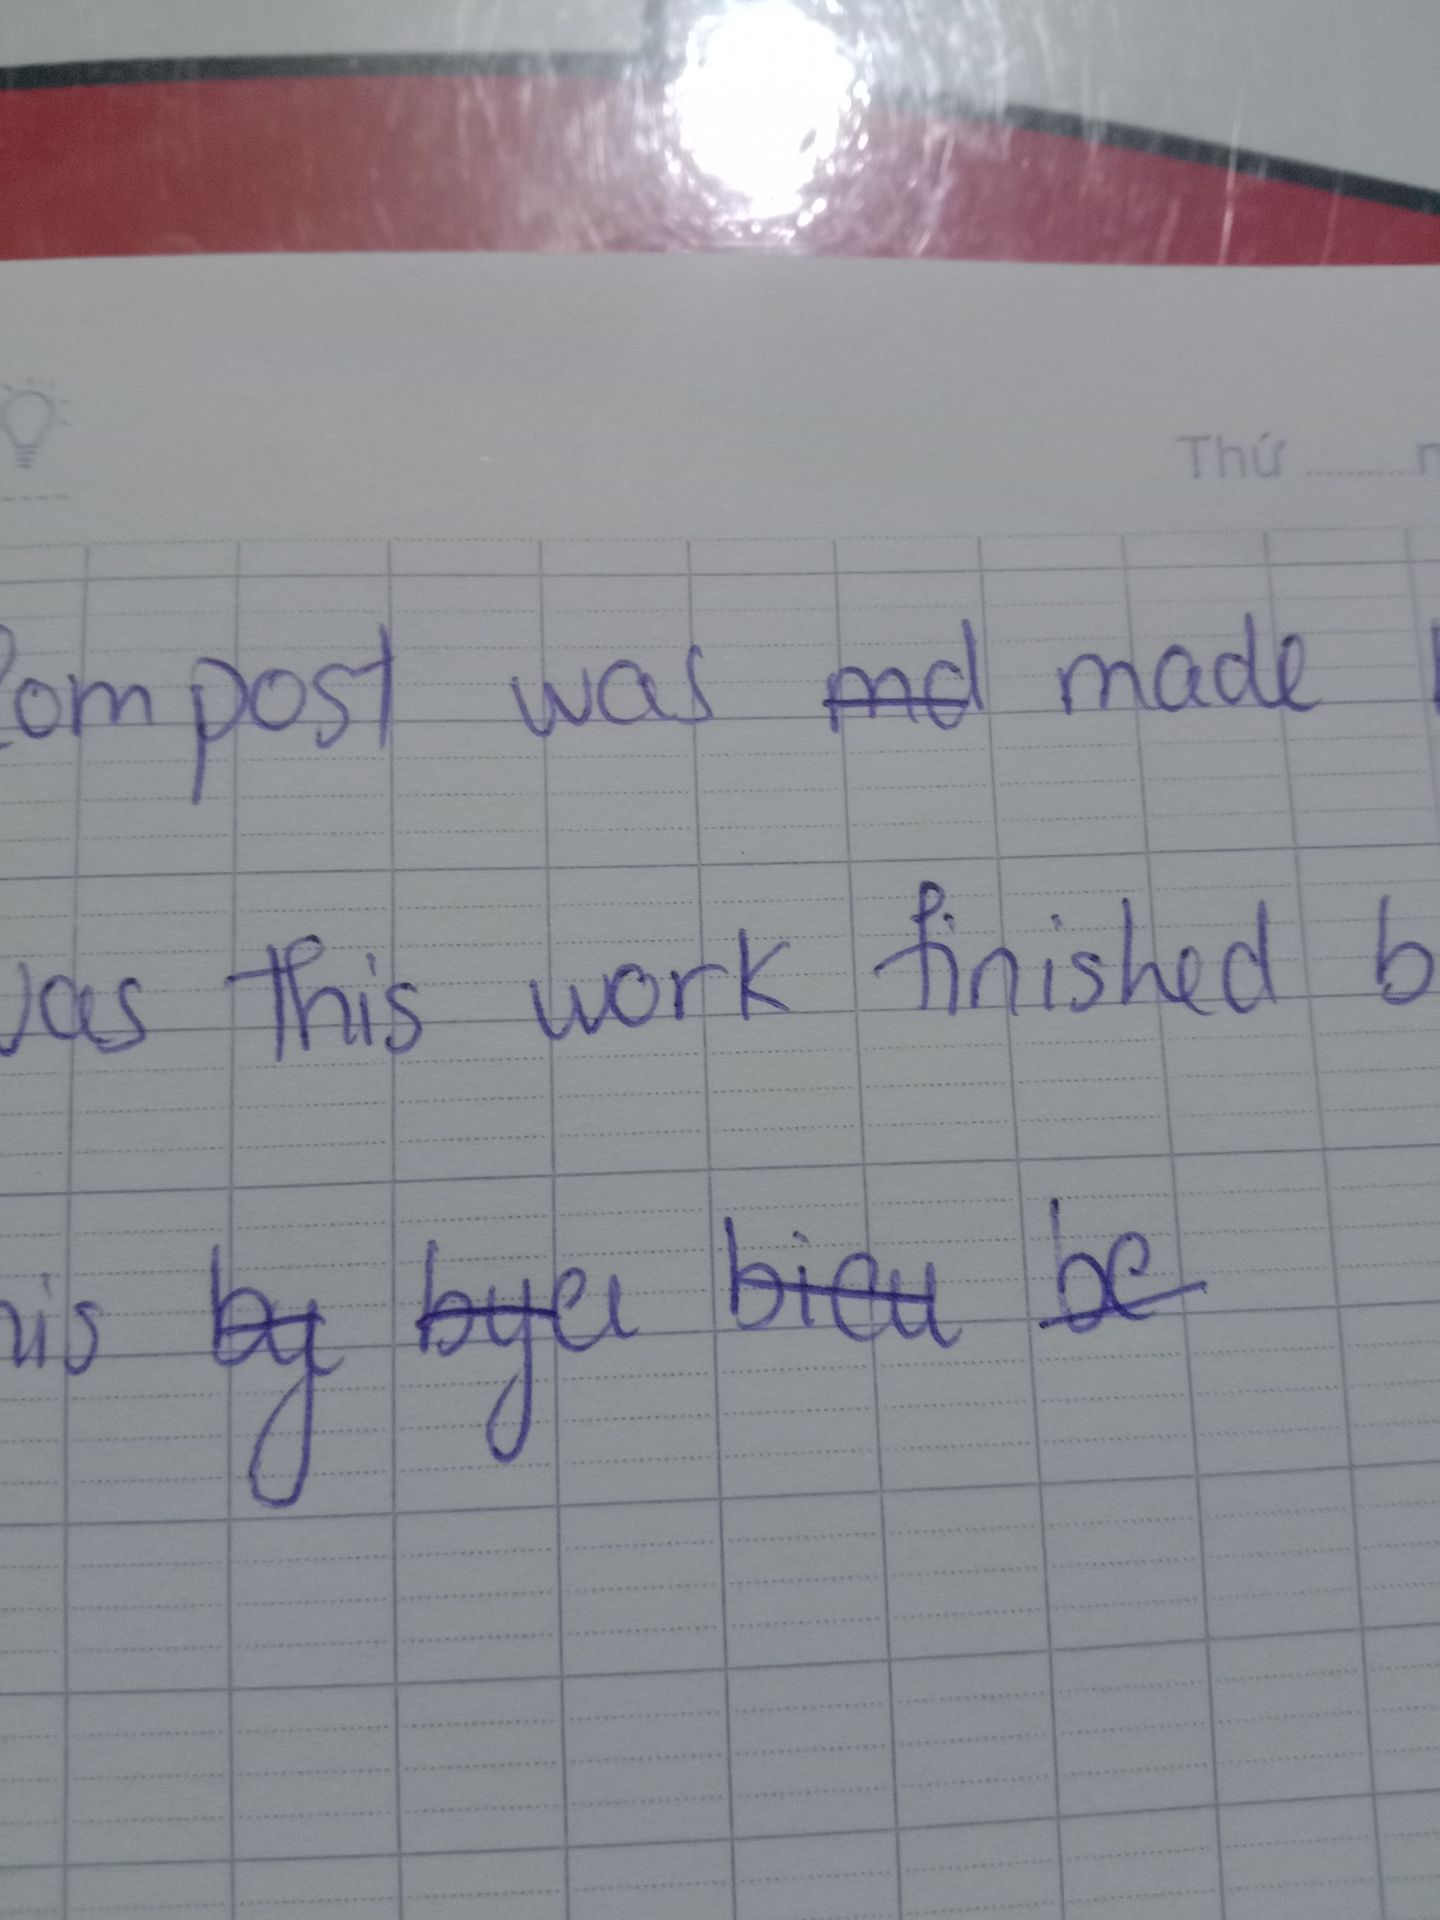 Thứ
Compost was md made
was this work finished
his by byeu bieu be